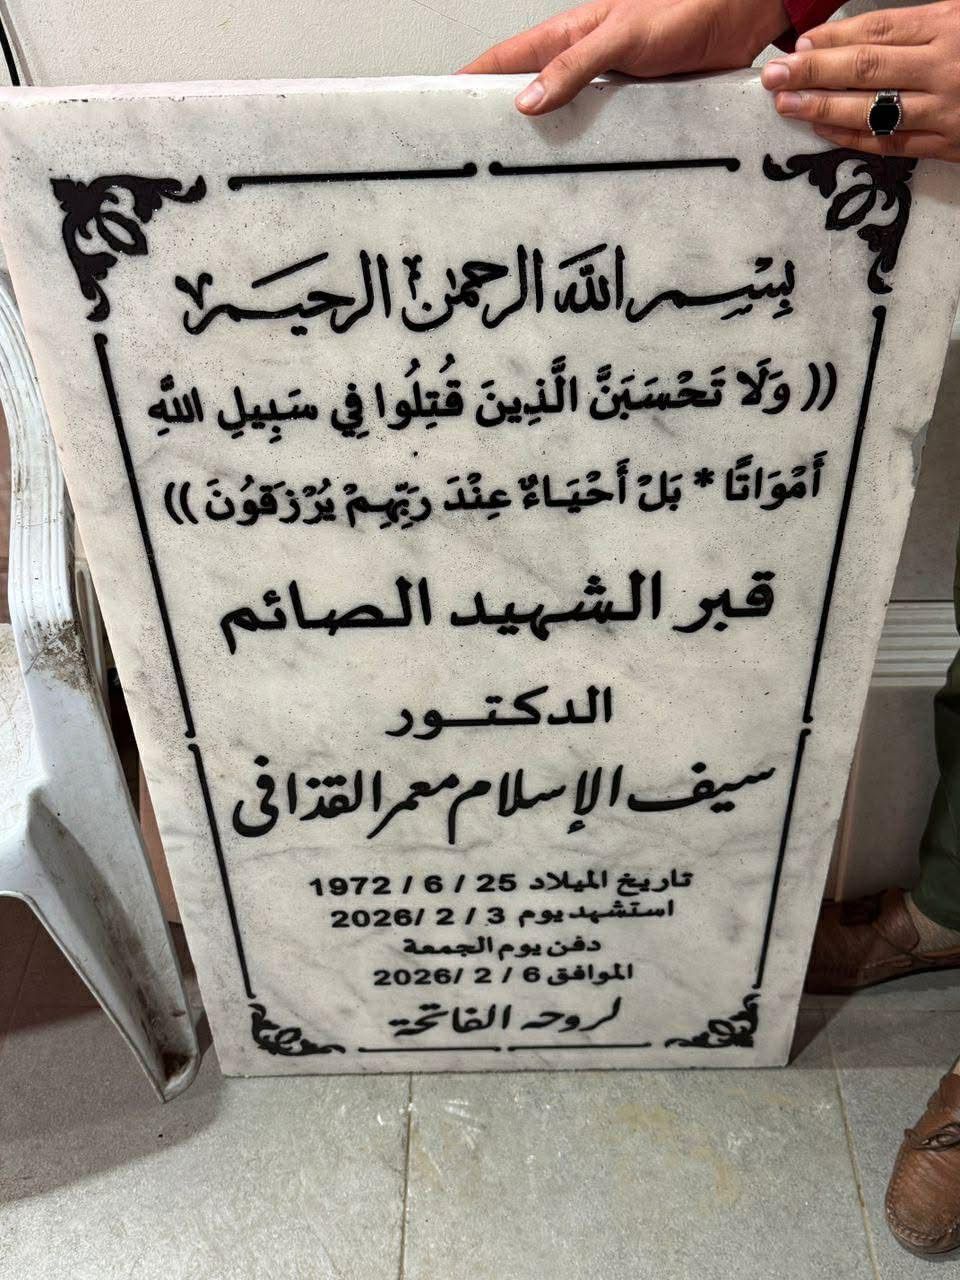 بِسْمِ اللَّهِ الرحمن الرحيم
(( وَلَا تَحْسَبَنَّ الَّذِينَ قُتِلُوا فِي سَبِيلِ اللَّهِ
أَمْوَاتًا * بَلْ أَحْيَاءٌ عِنْدَ رَبِّهِمْ يُرْزَقُونَ ))
قبر الشهيد الصائم
الدكتور
سيف الإسلام معمر القذافى
تاريخ الميلاد 25 / 6 / 1972
استشهد يوم 3 / 2 /2026
دفن يوم الجمعة
الموافق 6 / 2 /2026
لروحه الفاتحة